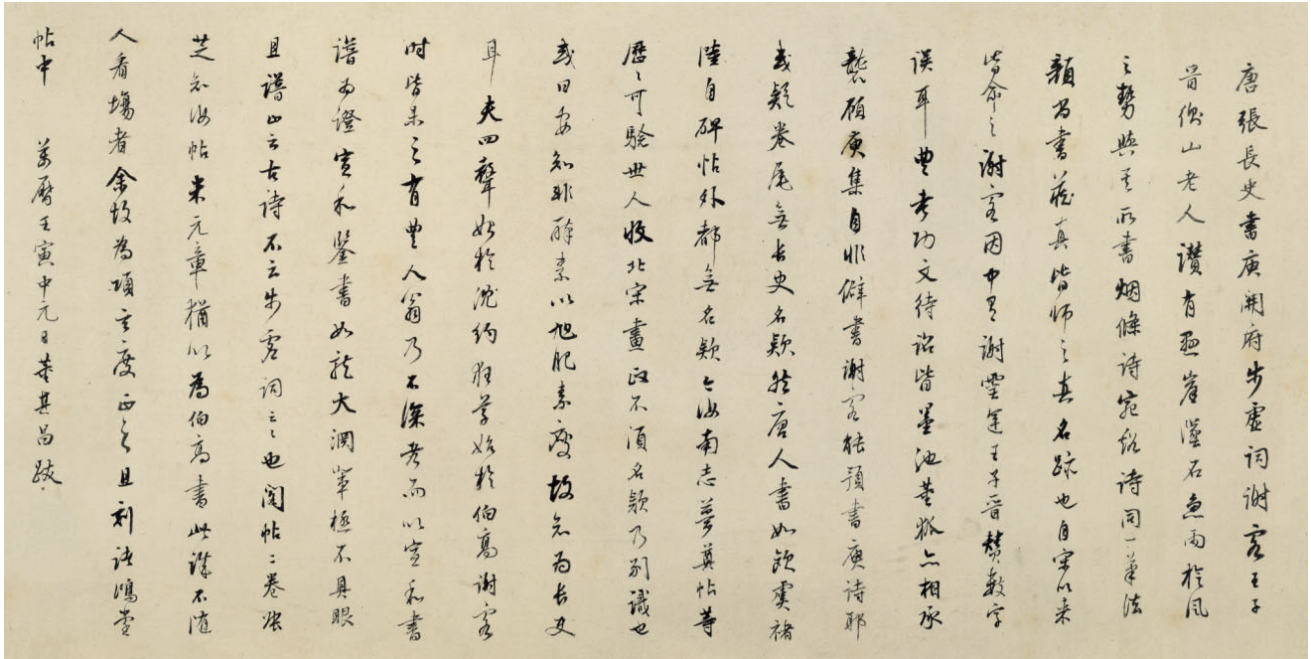 唐張長史書庾開府步虛詞謝客王子
晉衡山老人讚有懸崖墜石急雨旋風
之勢與其所書烟條詩宛谿詩同一筆法
顏尚書藏真皆師之真名跡也自宋以來
皆命之謝客因中有謝靈運王子晉贊數字
誤耳豐考功文待詔皆墨池董狐亦相承
襲顧庾集自非僻書謝客能預書庾詩耶
或疑卷尾無長史名款然唐人書如歐虞褚
陸自碑帖外都無名款今汝南志夢奠帖等
歷歷可驗世人收北宋畫政不須名款乃別識也
或曰安知非醉素以旭肥素瘦故知為長史
耳夫四聲始於沈約狂草始於伯高謝客
時皆未之有豐人翁乃不深考而以宣和書
譜為證宣和鑒書如龍大淵輩極不具眼
且譜止云古詩不云步虛詞云云也閣帖二卷張
芝知汝帖米元章猶以為伯高書此誰不隨
人看場者余故為項玄度正之且刻諸鴻堂
帖中 萬曆壬寅中元日董其昌跋